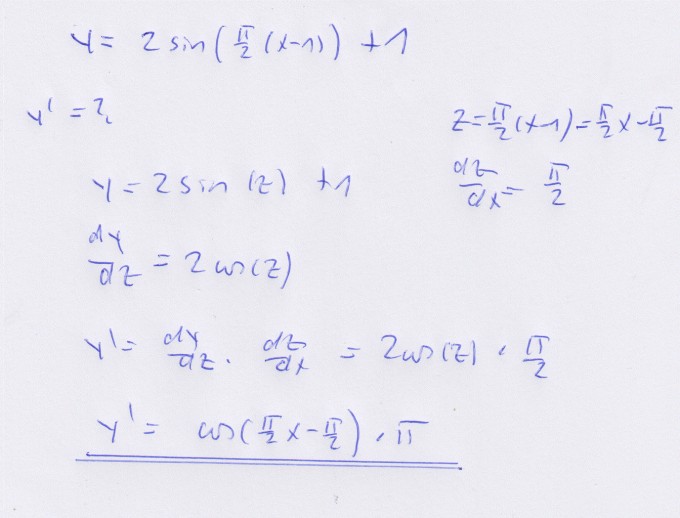 y = 2 sin(π/2 (x-1)) + 1
y' = ?
z = π/2 (x-1) = π/2 x - π/2
y = 2 sin (z) + 1
dz/dx = π/2
dy/dz = 2 cos(z)
y' = dy/dz · dz/dx = 2 cos(z) · π/2
y' = cos(π/2 x - π/2) · π